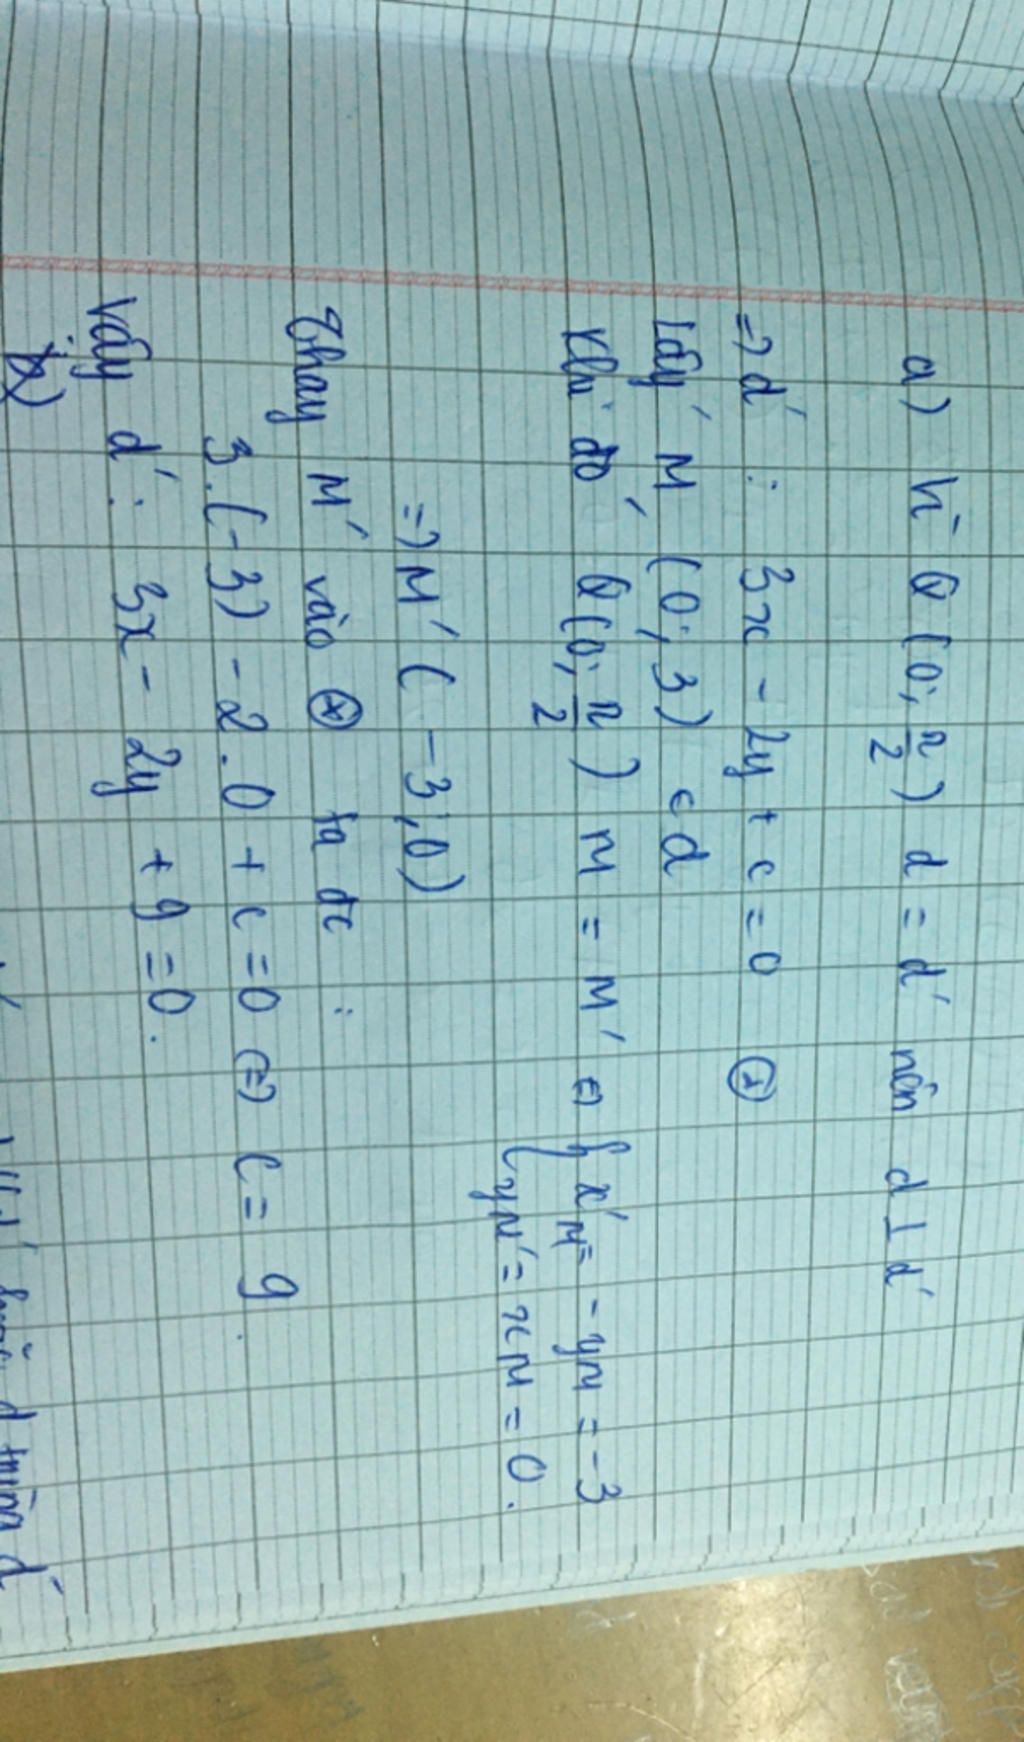 a) Vì Q(0; π/2) d = d' nên d ⊥ d'
=> d' : 3x - 2y + c = 0 (*)
Lấy M (0; 3) ∈ d
Khi đó Q(0; π/2) M = M' <=> { x'M = -yM = -3
yM' = xM = 0.
=> M' (-3; 0)
Thay M' vào (*) ta đc :
3.(-3) - 2.0 + c = 0 <=> c = 9.
Vậy d' : 3x - 2y + 9 = 0.
b)
d thành d'